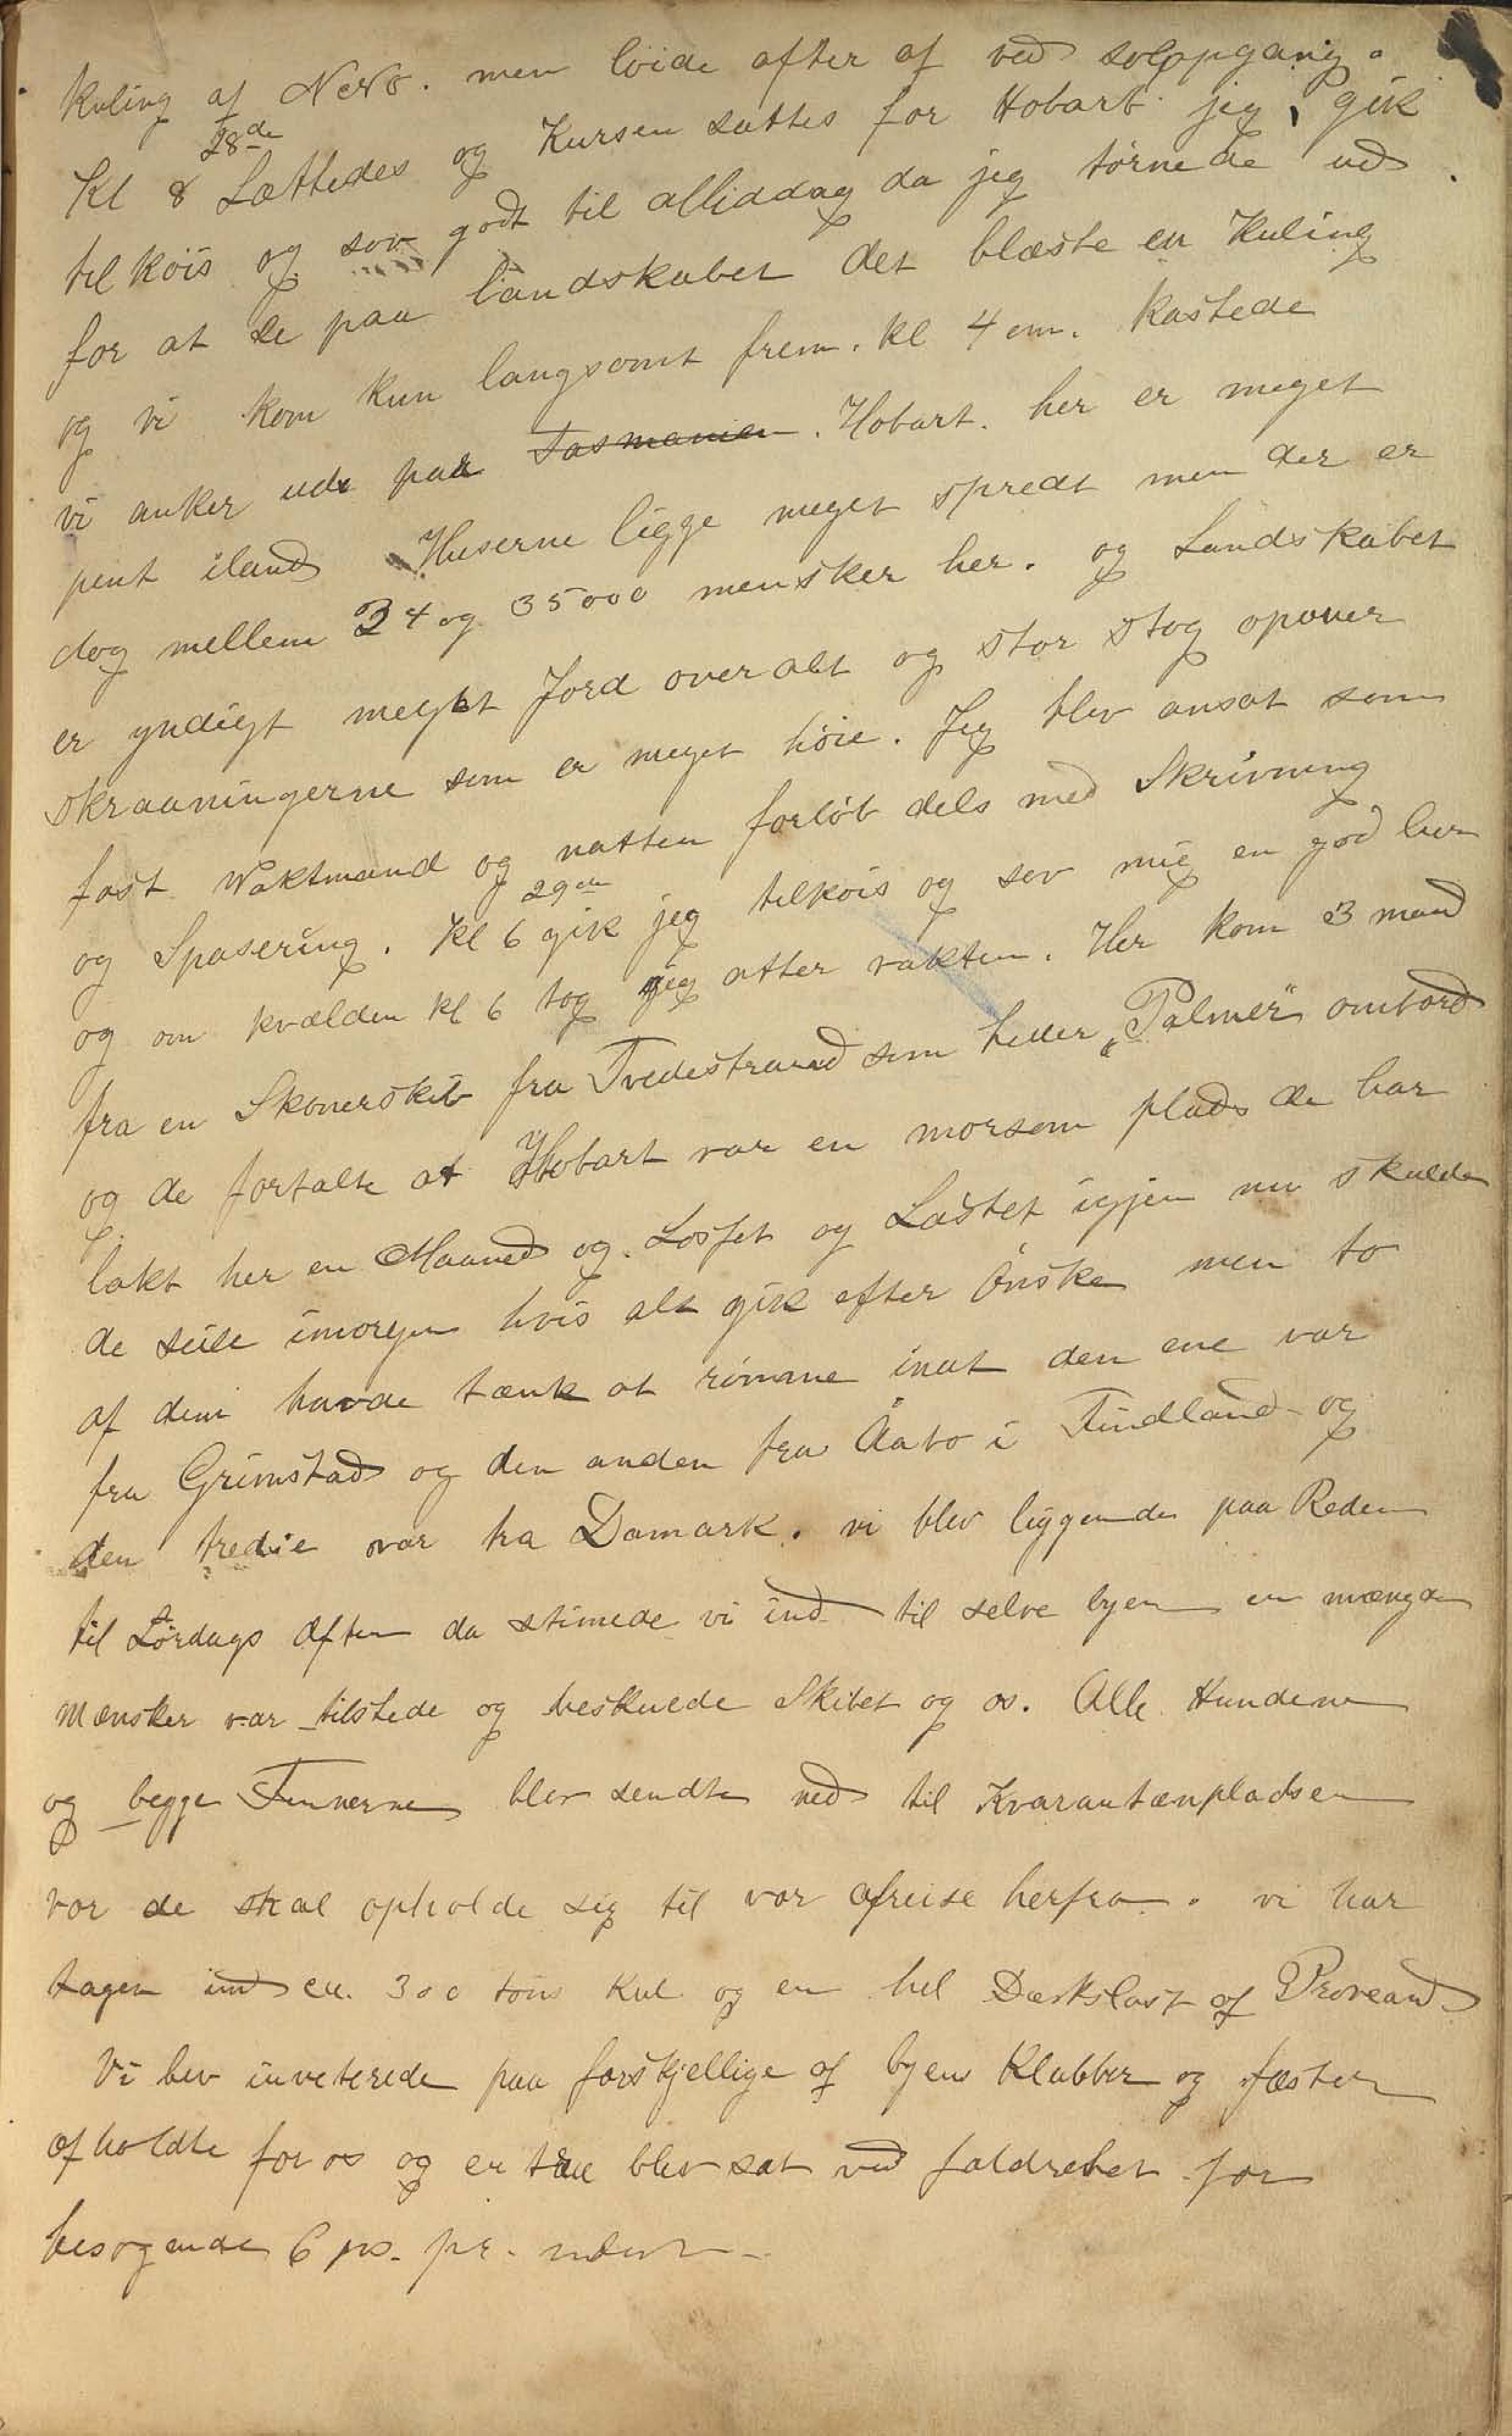 Kuling af NNO. men löide after af ved solopgang.
28de
Kl 8 Lættedes og Kursen sattes for Hobart jeg gik
til köis og sov godt til alliddag da jeg törnede ud
for at se paa landskabet det blæste en Kuling
og vi kom kun langsomt frem. Kl 4 em. Kastede
vi anker ude paa Tasmanien. Hobart. her er meget
pent iland Huserne ligge meget spredt men der er
dog mellem 34 og 35000 mensker her. og Landskabet
er yndigt meget Jord over alt og stor Skog opover
skraaningerne som er meget höie. Jeg blev ansat som
fast Waktmand og natten forlöb dels med Skrivning
29de
og Spasering. Kl 6 gik jeg tilkøis og sov mig en god lur
og om kvælden kl 6 tog jeg atter vakten. Her kom 3 mand
fra en Skonerskib fra Tvedestrand som heder „Palmer" ombord
og de fortalte at Hobart var en morsom plads de har
lakt her en Maaned og Losset og Lastet igjen nu skulde
de seile imorgen hvis alt gik efter Önske men to
af dem havde tænk at römme inat den ene var
fra Grimstad og den anden fra Åabo i Findland og
den tredie var fra Damark. vi blev liggende paa Reden
til Lördags Aften da stimede vi ind til selve byen en mængde
Mænsker var tilstede og beskuede Skibet og os. Alle Hundene
og begge Finnerne blev sendte ned til Kvarantænpladsen
vor de skal opholde sig til vor afreise herfra. vi har
tagen ind ca. 300 tons Kul og en hel Dækslast af Proveand
Vi bev inveterede paa forskjellige af byens Klubber og fæster
afholdte for os og en blev sat ved faldrebet for
besøgende 6 ps. pr.